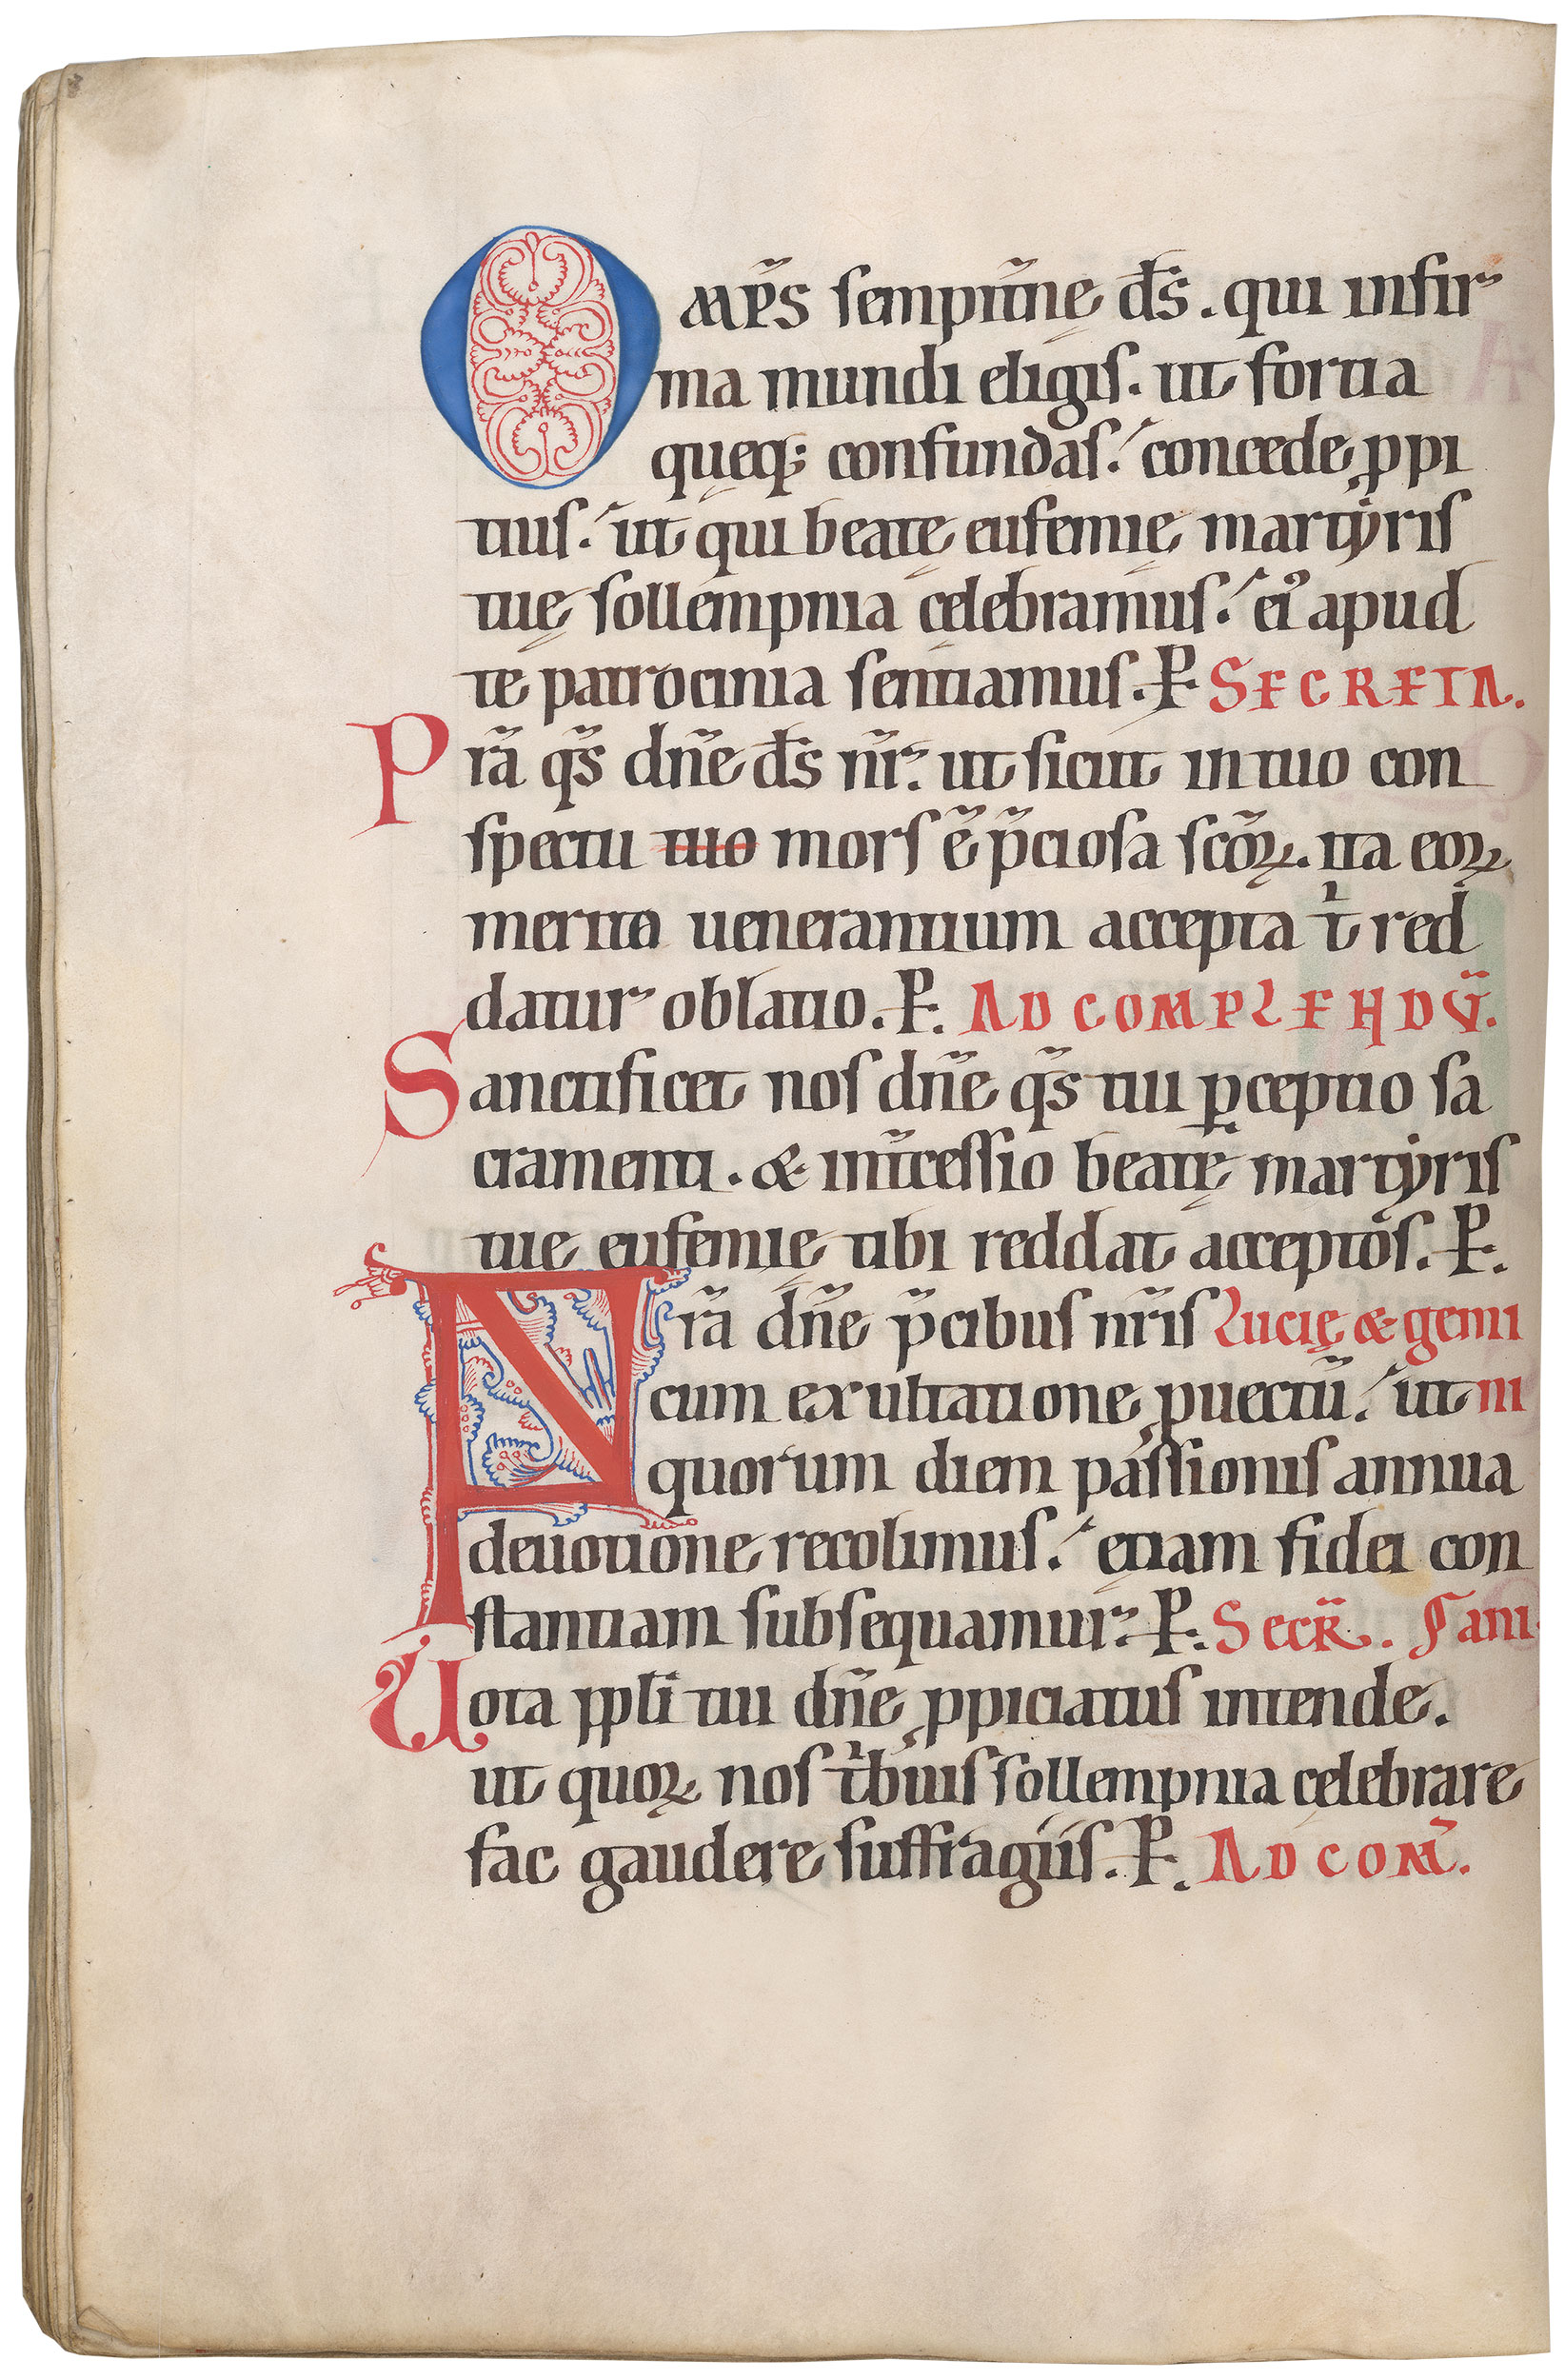 Omp̄s sempit̄nę d̄s. qui infir
ma mundi eligis. ut fortia
quęq; confundas. concede ꝓpi
tius. ut qui beatę eufemię martẏris
tuę sollempnia cęlebramus. eiꝰ apud
te patrocinia sentiamus. P. SECRETA.
Pr̄a q̄s dn̄e d̄s nr̄. ut sicut in tuo con
spectu tuo mors ē p̄ciosa sc̄oꝝ. ita eoꝝ
merito uenerantium accepta ṫ red
datur oblatio. P. AD COMPLENDV̄.
Sanctificet nos dn̄e q̄s tui ꝑceptio sa
cramenti. & int̄cessio beatę martẏris
tue eufemię tibi reddat acceptos. P.
Pr̄a dn̄e p̄cibus nr̄is Lucię & gemi
cum exultatione ꝓuectū. ut ni
quorum diem passionis annua
deuotione recolimus. etiam fidei con
stantiam subsequamur. P. Secr̄. ani
Uota ppl̄i tui dn̄e ꝓpiciatus intende.
ut quoꝝ nos ṫbuis sollempnia cęlebrare
fac gaudere suffragiis. P. AD COM̄.